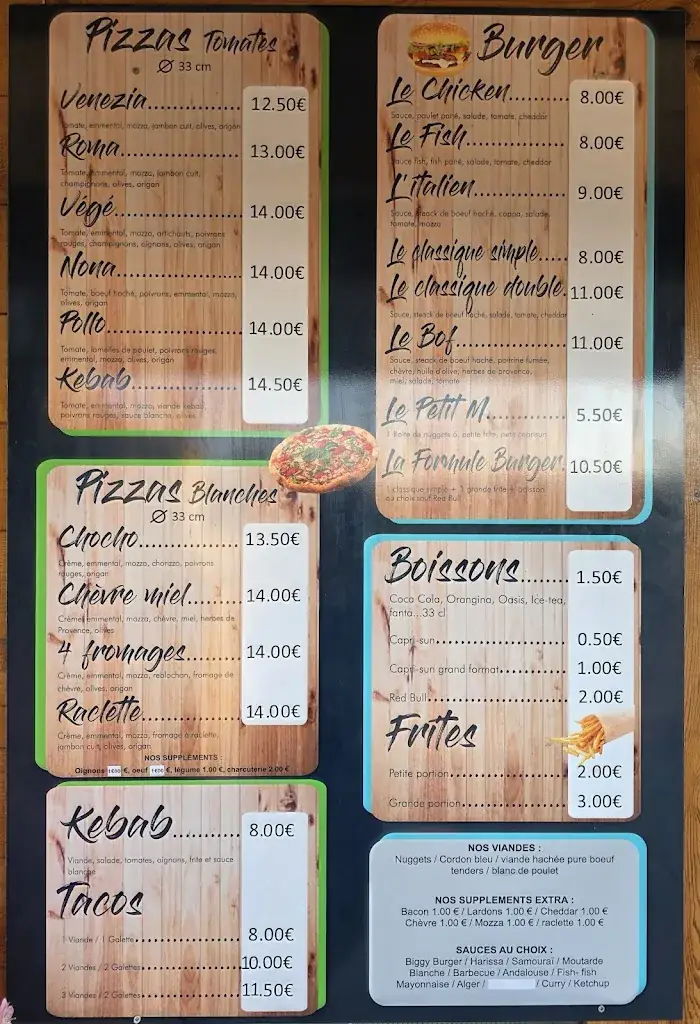 Pizzas Tomates
Ø 33 cm
Venezia.................. 12.50€
Tomate, emmental, mozza, jambon cuit, olives, origan
Roma...................... 13.00€
Tomate, emmental, mozza, jambon cuit,
champignons, olives, origan
Végé....................... 14.00€
Tomate, emmental, mozza, artichauts, poivrons
rouges, champignons, oignons, olives, origan
Nona....................... 14.00€
Tomate, boeuf haché, poivrons, emmental, mozza,
olives, origan
Pollo........................ 14.00€
Tomate, lamelles de poulet, poivrons rouges,
emmental, mozza, olives, origan
Kebab..................... 14.50€
Tomate, emmental, mozza, viande kebab,
poivrons rouges, sauce blanche, olives
Pizzas Blanches
Ø 33 cm
Chocho.................... 13.50€
Crème, emmental, mozza, chorizo, poivrons
rouges, origan
Chèvre miel......... 14.00€
Crème, emmental, mozza, chèvre, miel, herbes de
Provence, olives
4 fromages......... 14.00€
Crème, emmental, mozza, reblochon, fromage de
chèvre, olives, origan
Raclette................ 14.00€
Crème, emmental, mozza, fromage à raclette,
jambon cuit, olives, origan
NOS SUPPLEMENTS :
Oignons €, oeuf €, légume 1.00 €, charcuterie 2.00 €
Kebab........... 8.00€
Viande, salade, tomates, oignons, frite et sauce
blanche
Tacos
1 Viande / 1 Galette................. 8.00€
2 Viandes / 2 Galettes............... 10.00€
3 Viandes / 2 Galettes............... 11.50€
Burger
Le Chicken......... 8.00€
Sauce, poulet pané, salade, tomate, cheddar
Le Fish................ 8.00€
Sauce fish, fish pané, salade, tomate, cheddar
L'italien............... 9.00€
Sauce, steack de boeuf haché, coppa, salade,
tomate, mozza
Le classique simple..... 8.00€
Le classique double. 11.00€
Sauce, steack de boeuf haché, salade, tomate, cheddar
Le Bof.................. 11.00€
Sauce, steack de boeuf haché, poitrine fumée,
chèvre, huile d'olive, herbes de provence,
miel, salade, tomate
Le Petit M........... 5.50€
1 Boite de nuggets 6, petite frite, petit caprisun
La Formule Burger. 10.50€
1 classique simple + 1 grande frite + boisson
au choix sauf Red Bull
Boissons....... 1.50€
Coca Cola, Orangina, Oasis, Ice-tea,
fanta...33 cl
Capri-sun........................ 0.50€
Capri-sun grand format............ 1.00€
Red Bull......................... 2.00€
Frites
Petite portion..................... 2.00€
Grande portion.................. 3.00€
NOS VIANDES :
Nuggets / Cordon bleu / viande hachée pure boeuf
tenders / blanc de poulet
NOS SUPPLEMENTS EXTRA :
Bacon 1.00 € / Lardons 1.00 € / Cheddar 1.00 €
Chèvre 1.00 € / Mozza 1.00 € / raclette 1.00 €
SAUCES AU CHOIX :
Biggy Burger / Harissa / Samouraï / Moutarde
Blanche / Barbecue / Andalouse / Fish- fish
Mayonnaise / Alger / / Curry / Ketchup